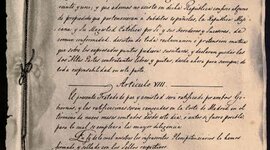 cuenté, y que ademas no existe en dicha Republica confisco alguno
de propiedad que perteneciera a subditos españoles, la Republica Meji-
cana, y Su Magestad Católica por sí y sus herederos y sucesores, de
comun conformidad, desisten de toda reclamacion o pretension mutua
que sobre los expresados puntos pudiera suscitarse, y declaran quedar las
dos Altas Partes contratantes libres y quitas, desde ahora para siempre de
toda responsabilidad en esta parte.
Articulo VIII.
El presente Tratado de paz y amistad será ratificado por ambos Go-
biernos, y las ratificaciones serán cangeadas en la Corte de Madrid en el
término de nueve meses contados desde este dia, o antes si fuere posible,
para lo cual se empleará la mayor diligencia.
En fé de lo cual nosotros los infrascritos Plenipotenciarios lo hemos
firmado y sellado con los sellos respectivos.